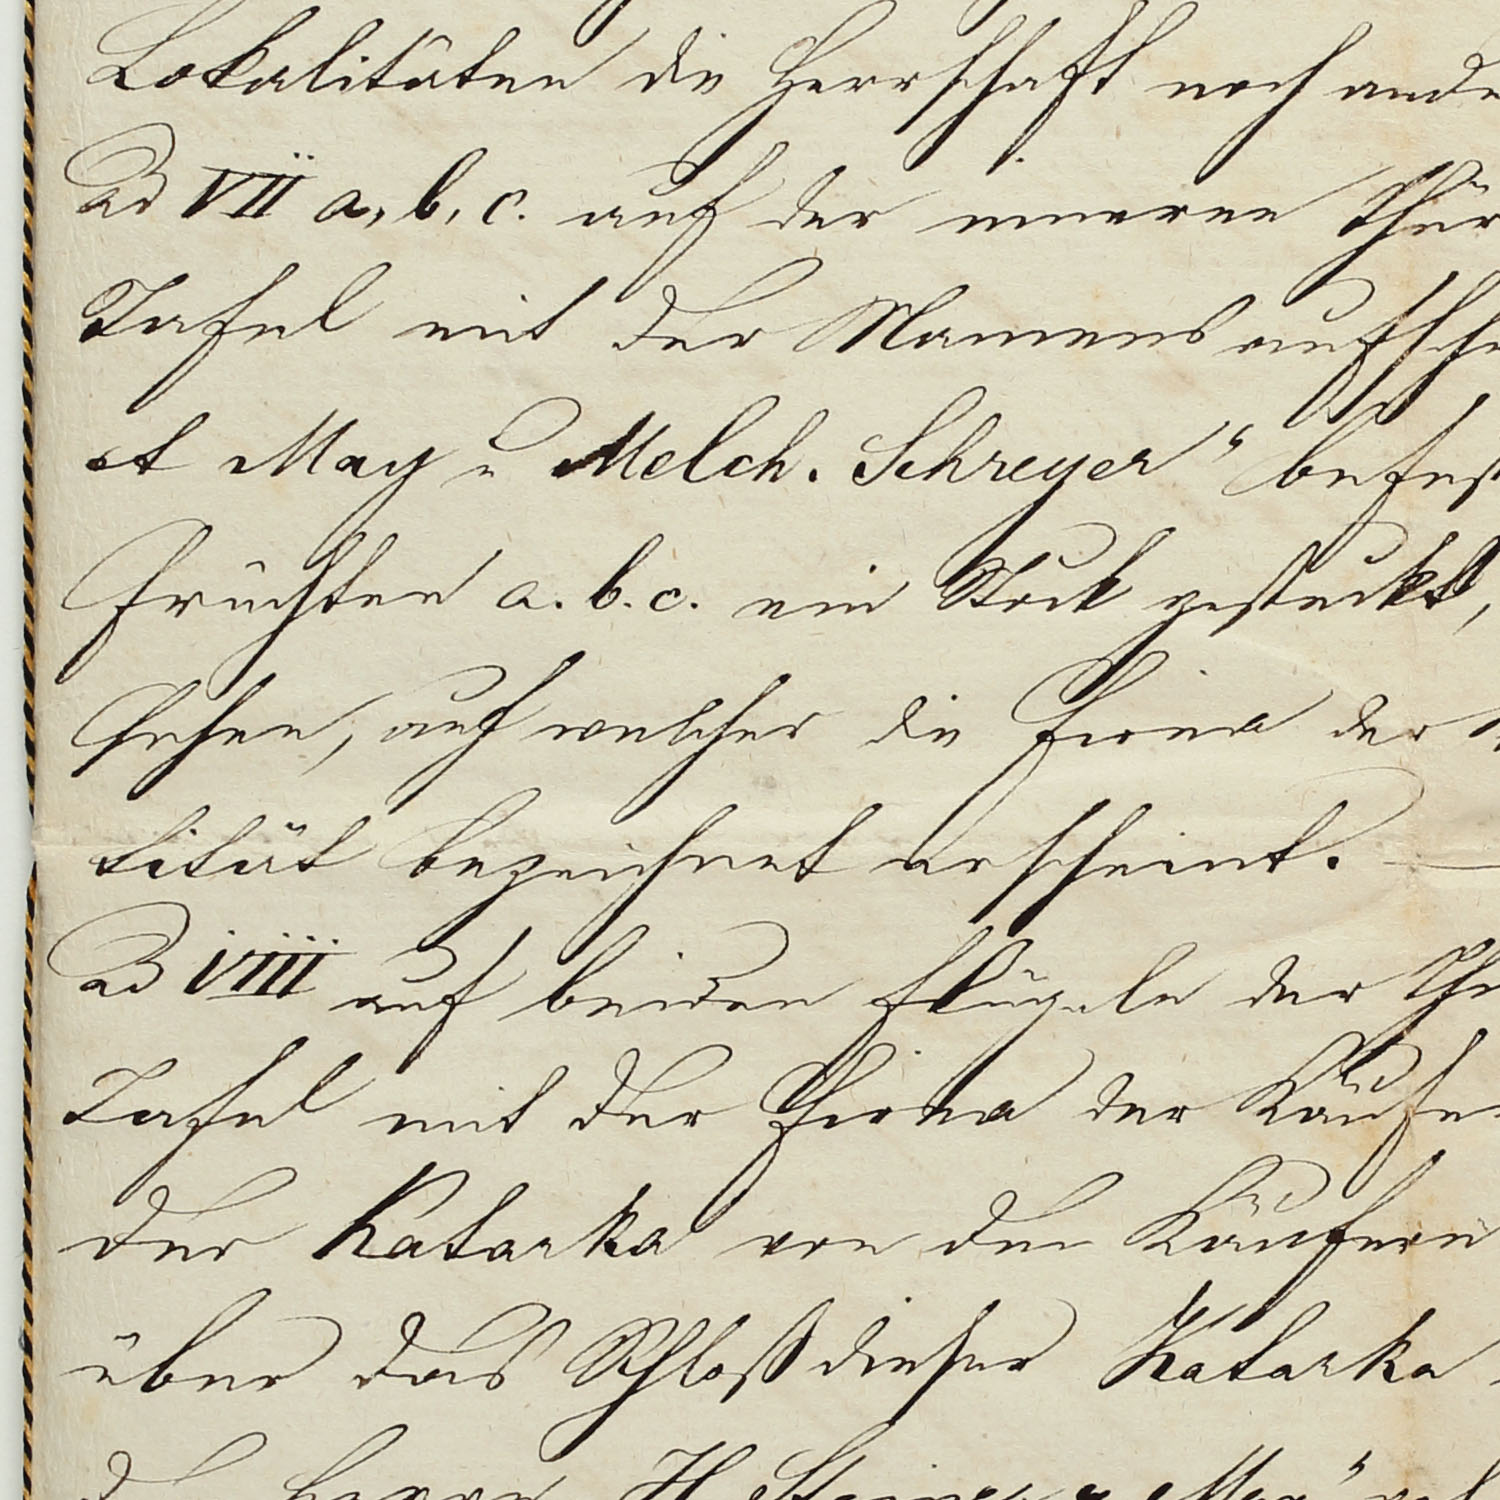 Lokalitäten die Herrschaft noch ande
Ad VII a, b, c. auf der inneren Thür
Tafel mit der Namensaufschr
et May u Melch. Schreyer" befest
Früchten a. b. c. ein Stock gesteckt,
sehen, auf welcher die Firma der
tität bezeichnet erscheint.
Ad VIII auf beiden Flügeln der Th
Tafel mit der Firma der Käufer
der Kotarka von den Käufern
über das Schloß dieser Kotarka
H. Steiner & May"